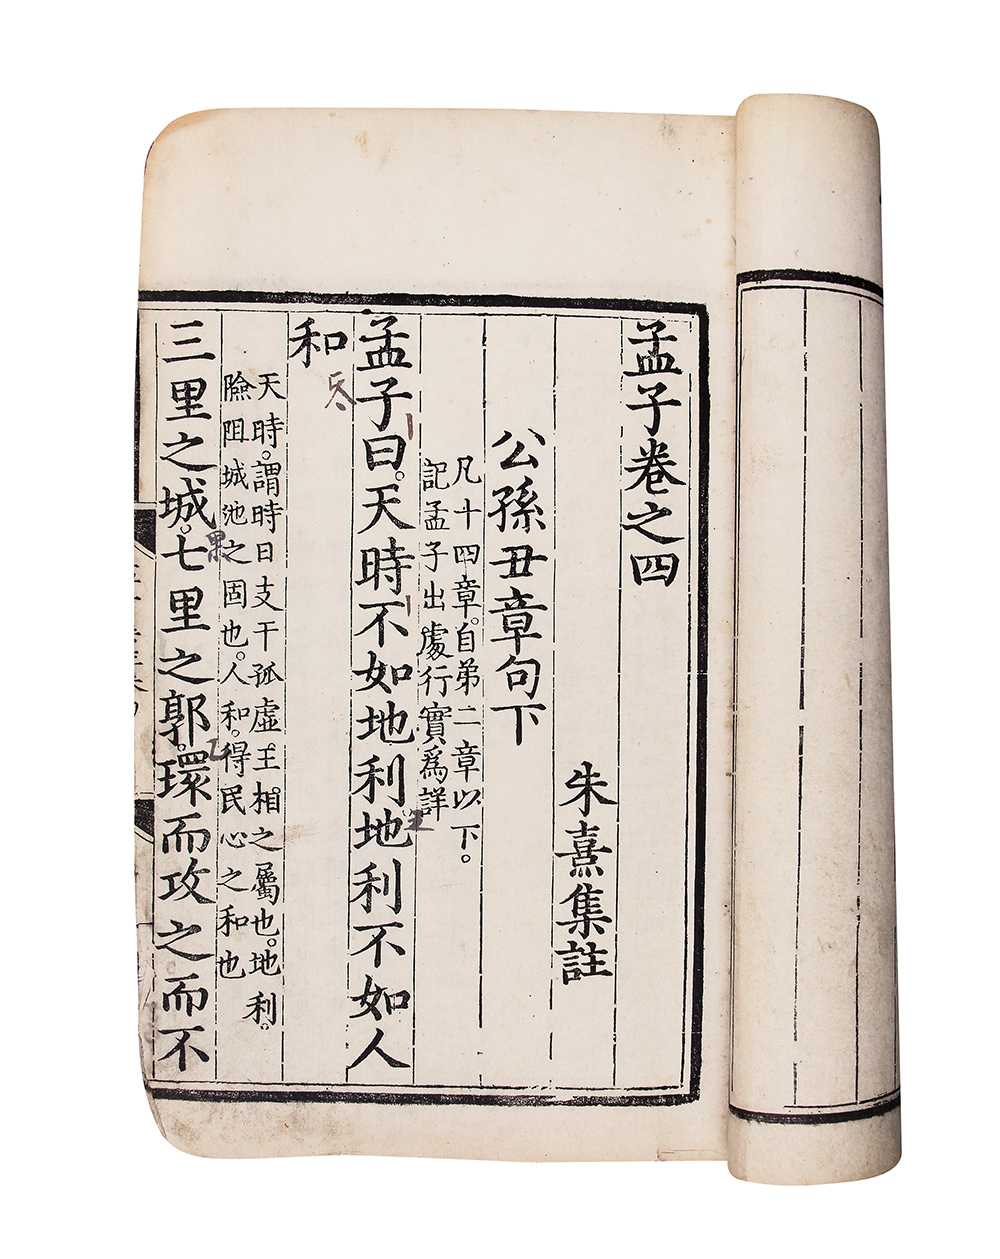 孟子卷之四
朱熹集註
公孫丑章句下
凡十四章。自第二章以下。
記孟子出處行實爲詳
孟子曰。天時不如地利地利不如人
和
天時。謂時日支干孤虛王相之屬也。地利。
險阻城池之固也。人和。得民心之和也
三里之城。七里之郭。環而攻之而不